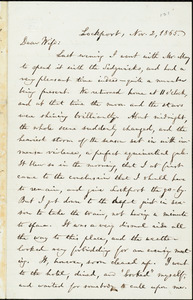 Lockport, Nov. 2, 1865.
Dear Wife:
Last evening I went with Mr. May
to spend it with the Sedgwicks, and had a
very pleasant time indeed—quite a number
being present. We returned home at 11 o'clock,
and at that time the moon and the stars
were shining brilliantly. About midnight,
the whole scene suddenly changed, and the
heaviest storm of the season set in with im-
mense violence, a perfect equinoctial gale.
It blew so in the morning that I at first
came to the conclusion that I should have
to remain, and give Lockport the go-by.
But I got down to the depot just in sea-
son to take the train, not having a minute
to spare. It was a very dismal ride all
the way to this place, and the weather
looked very forbidding for an evening meet-
ing. It, however, soon cleared up. I went
to the hotel, dined, and "looked" myself,
and waited for somebody to call upon me